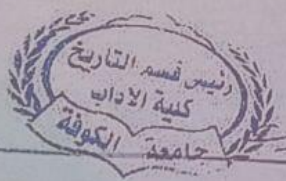 رئيس قسم التاريخ
كلية الآداب
جامعة الكوفة